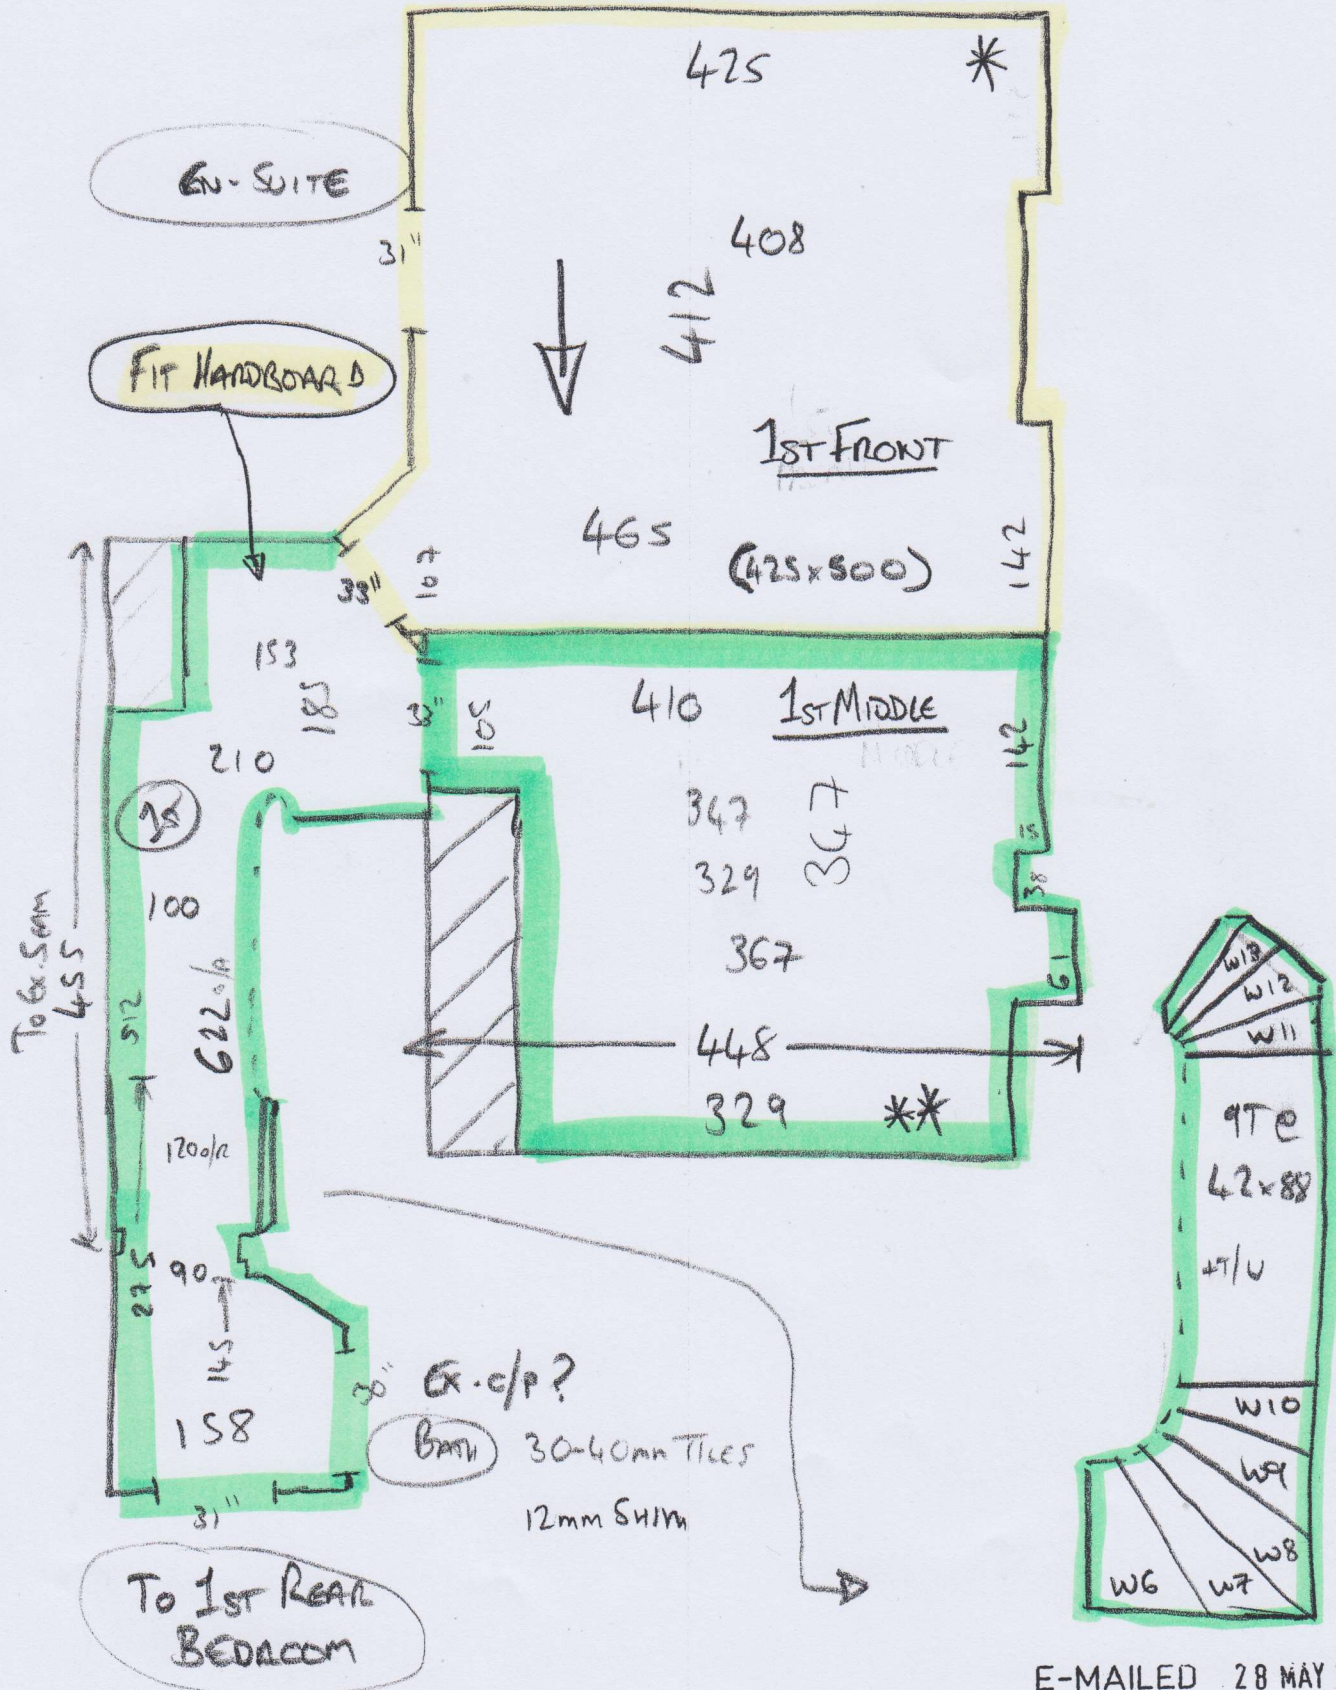 425 *
EN-SUITE
31"
408
412
FIT HARDBOARD
1ST FRONT
465
(425x500)
142
107
33"
153
185
210
33"
105
410
1ST MIDDLE
142
347
347
329
15
38
367
61
448
329
**
1st
100
To Ex. SEAM
455
512
622 o/A
120 o/R
275
90
145
158
30"
Ex. c/p?
BATH
30-40mm TILES
12mm SHIM
31"
To 1ST REAR
BEDROOM
W13
W12
W11
9T@
42x88
+T/U
W10
W9
W8
W7
W6
E-MAILED 28 MAY